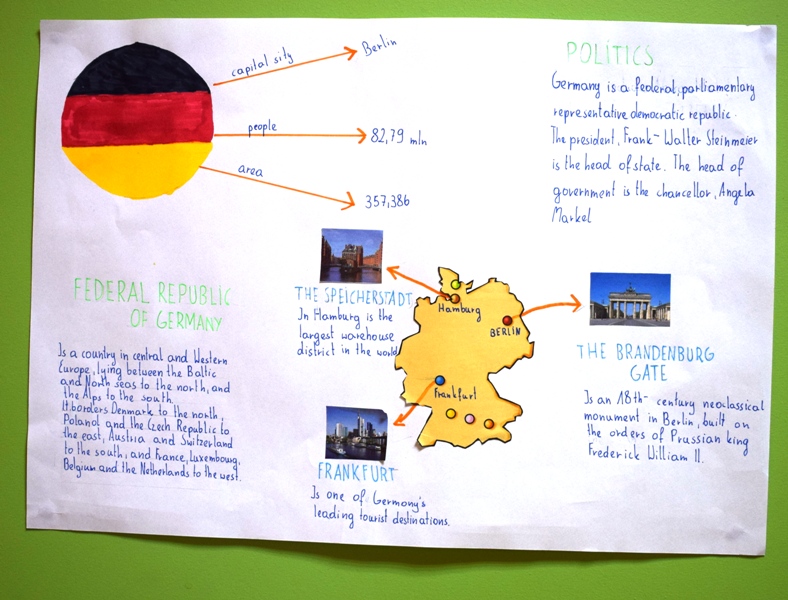 capital sity
Berlin
people
82,79 mln
area
357,386
POLITICS
Germany is a federal, parliamentary
representative democratic republic.
The president, Frank-Walter Steinmeier
is the head of state. The head of
government is the chancellor, Angela
Markel
FEDERAL REPUBLIC
OF GERMANY
Is a country in central and Western
Europe, lying between the Baltic
and North seas to the north, and
the Alps to the south.
It borders Denmark to the north,
Poland and the Czech Republic to
the east, Austria and Switzerland
to the south, and France, Luxembourg,
Belgium and the Netherlands to the west.
THE SPEICHERSTADT
In Hamburg is the
largest warehouse
district in the world
Hamburg
BERLIN
Frankfurt
FRANKFURT
Is one of Germany's
leading tourist destinations.
THE BRANDENBURG
GATE
Is an 18th-century neoclassical
monument in Berlin, built on
the orders of Prussian king
Frederick William II.